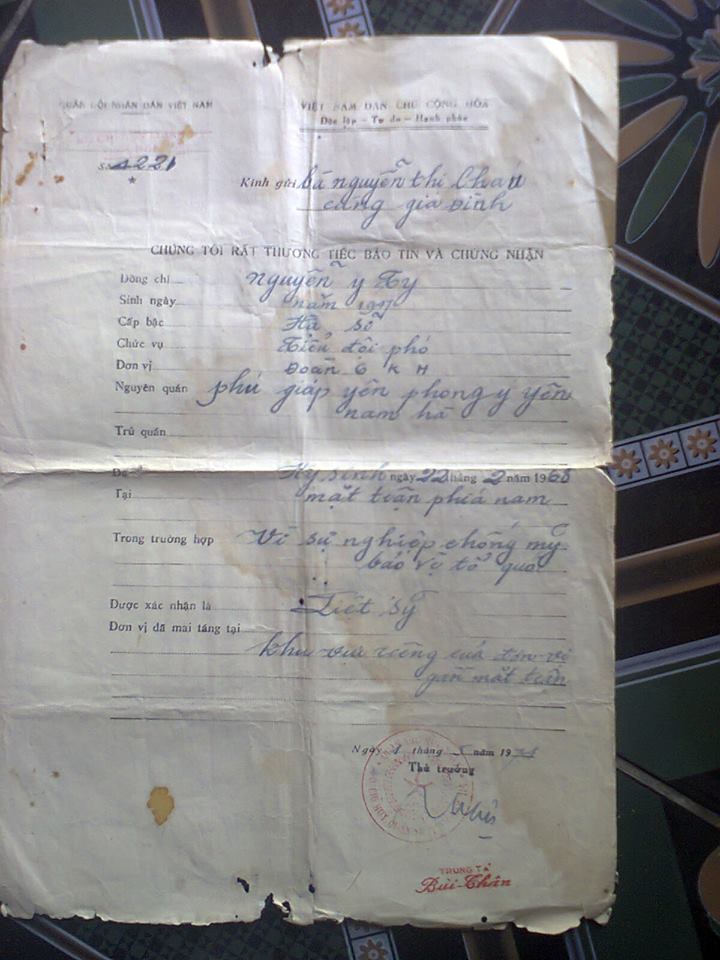 QUÂN ĐỘI NHÂN DÂN VIỆT NAM
VIỆT NAM DÂN CHỦ CỘNG HÒA
Độc lập - Tự do - Hạnh phúc
Số 1221
Kính gửi bà nguyễn thi Chau
cùng gia Đình
CHÚNG TÔI RẤT THƯƠNG TIẾC BÁO TIN VÀ CHỨNG NHẬN
Đồng chí nguyễn y Ty
Sinh ngày năm
Cấp bậc Hạ sĩ
Chức vụ Tiểu đội phó
Đơn vị Đoàn 6 K H
Nguyên quán phú giáp yên phong ý yên
nam hà
Trú quán
Đã Hy sinh ngày 22 tháng 2 năm 1968
Tại mặt trận phía nam
Trong trường hợp Vì sự nghiệp chống mỹ
bảo vệ tổ quốc
Được xác nhận là Liệt sỹ
Đơn vị đã mai táng tại
khu vực riêng của đơn vị
gần mặt trận
Ngày 1 tháng năm 19
Thủ trưởng
TRUNG TÁ
Bùi-Thân